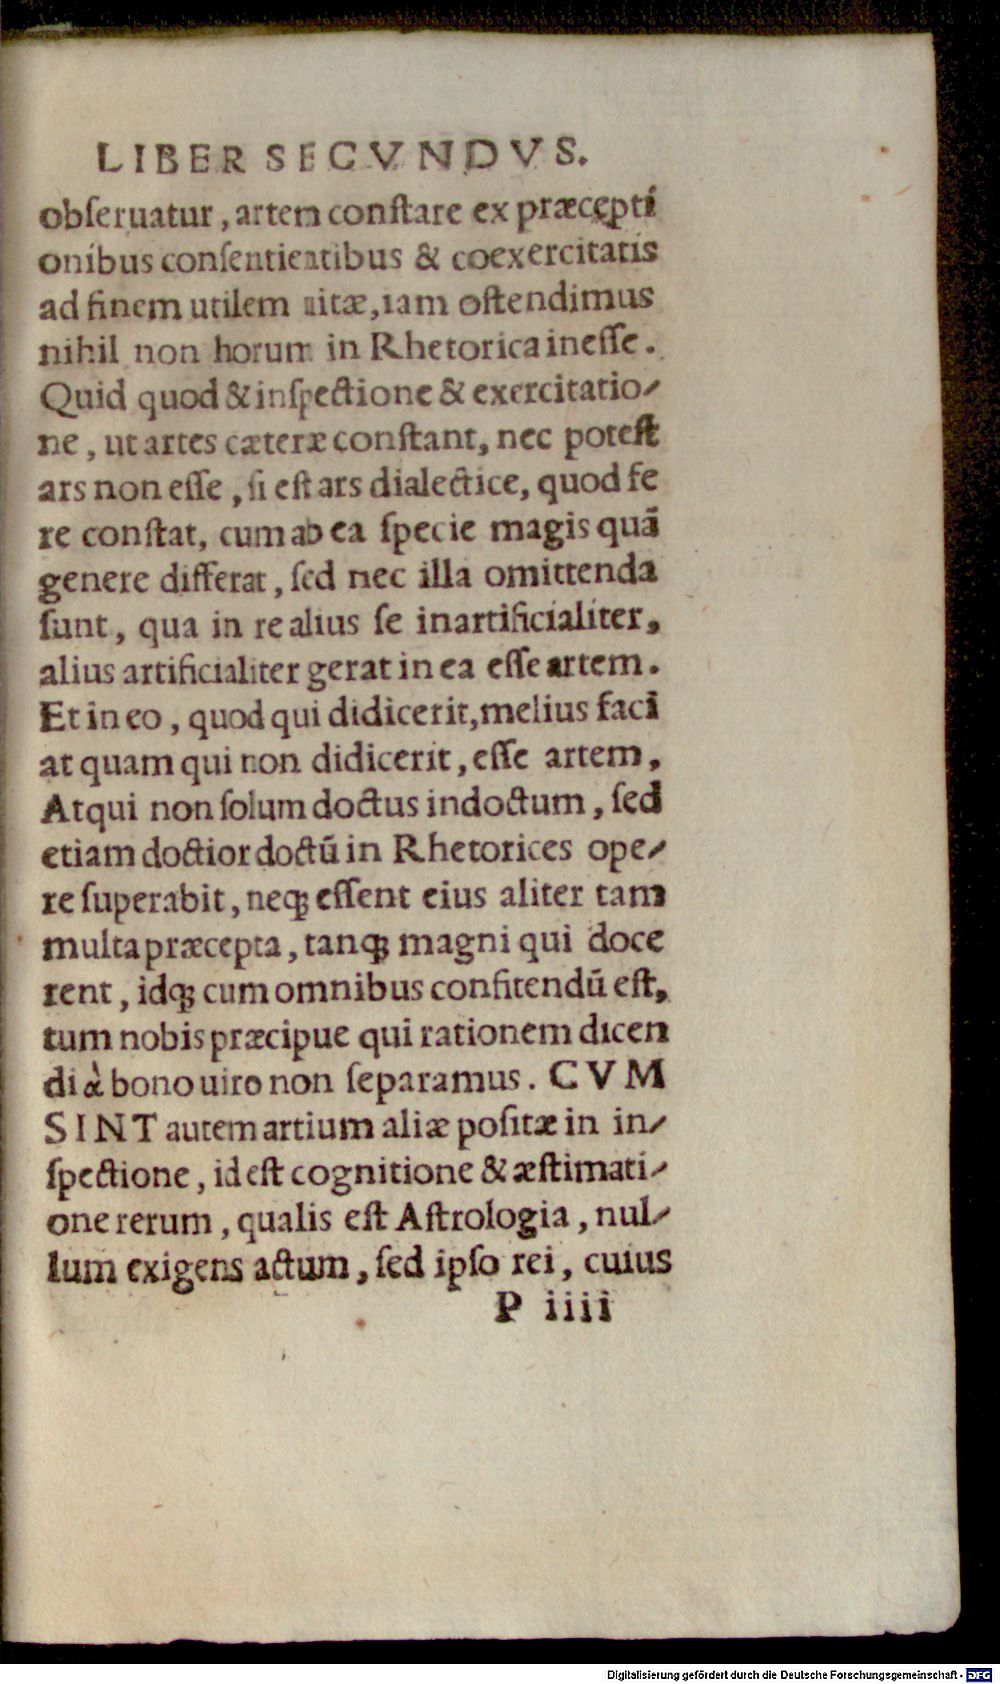 LIBER SECVNDVS.
obſeruatur, artem conſtare ex præcepti
onibus conſentientibus & coexercitatis
ad finem utilem uitæ, iam oſtendimus
nihil non horum in Rhetorica ineſſe.
Quid quod & inſpectione & exercitatio⸗
ne, ut artes cæteræ conſtant, nec poteſt
ars non eſſe, ſi eſt ars dialectice, quod fe
re conſtat, cum ab ea ſpecie magis quã
genere differat, ſed nec illa omittenda
ſunt, qua in re alius ſe inartificialiter,
alius artificialiter gerat in ea eſſe artem.
Et in eo, quod qui didicerit, melius faci
at quam qui non didicerit, eſſe artem,
Atqui non ſolum doctus indoctum, ſed
etiam doctior doctũ in Rhetorices ope⸗
re ſuperabit, neqꝫ eſſent eius aliter tam
multa præcepta, tanqꝫ magni qui doce
rent, idqꝫ cum omnibus confitendũ eſt,
tum nobis præcipue qui rationem dicen
di à bono uiro non ſeparamus. CVM
SINT autem artium aliæ poſitæ in in⸗
ſpectione, id eſt cognitione & æſtimati⸗
one rerum, qualis eſt Aſtrologia, nul⸗
lum exigens actum, ſed ipſo rei, cuius
P iiii
Digitalisierung gefördert durch die Deutsche Forschungsgemeinschaft - DFG